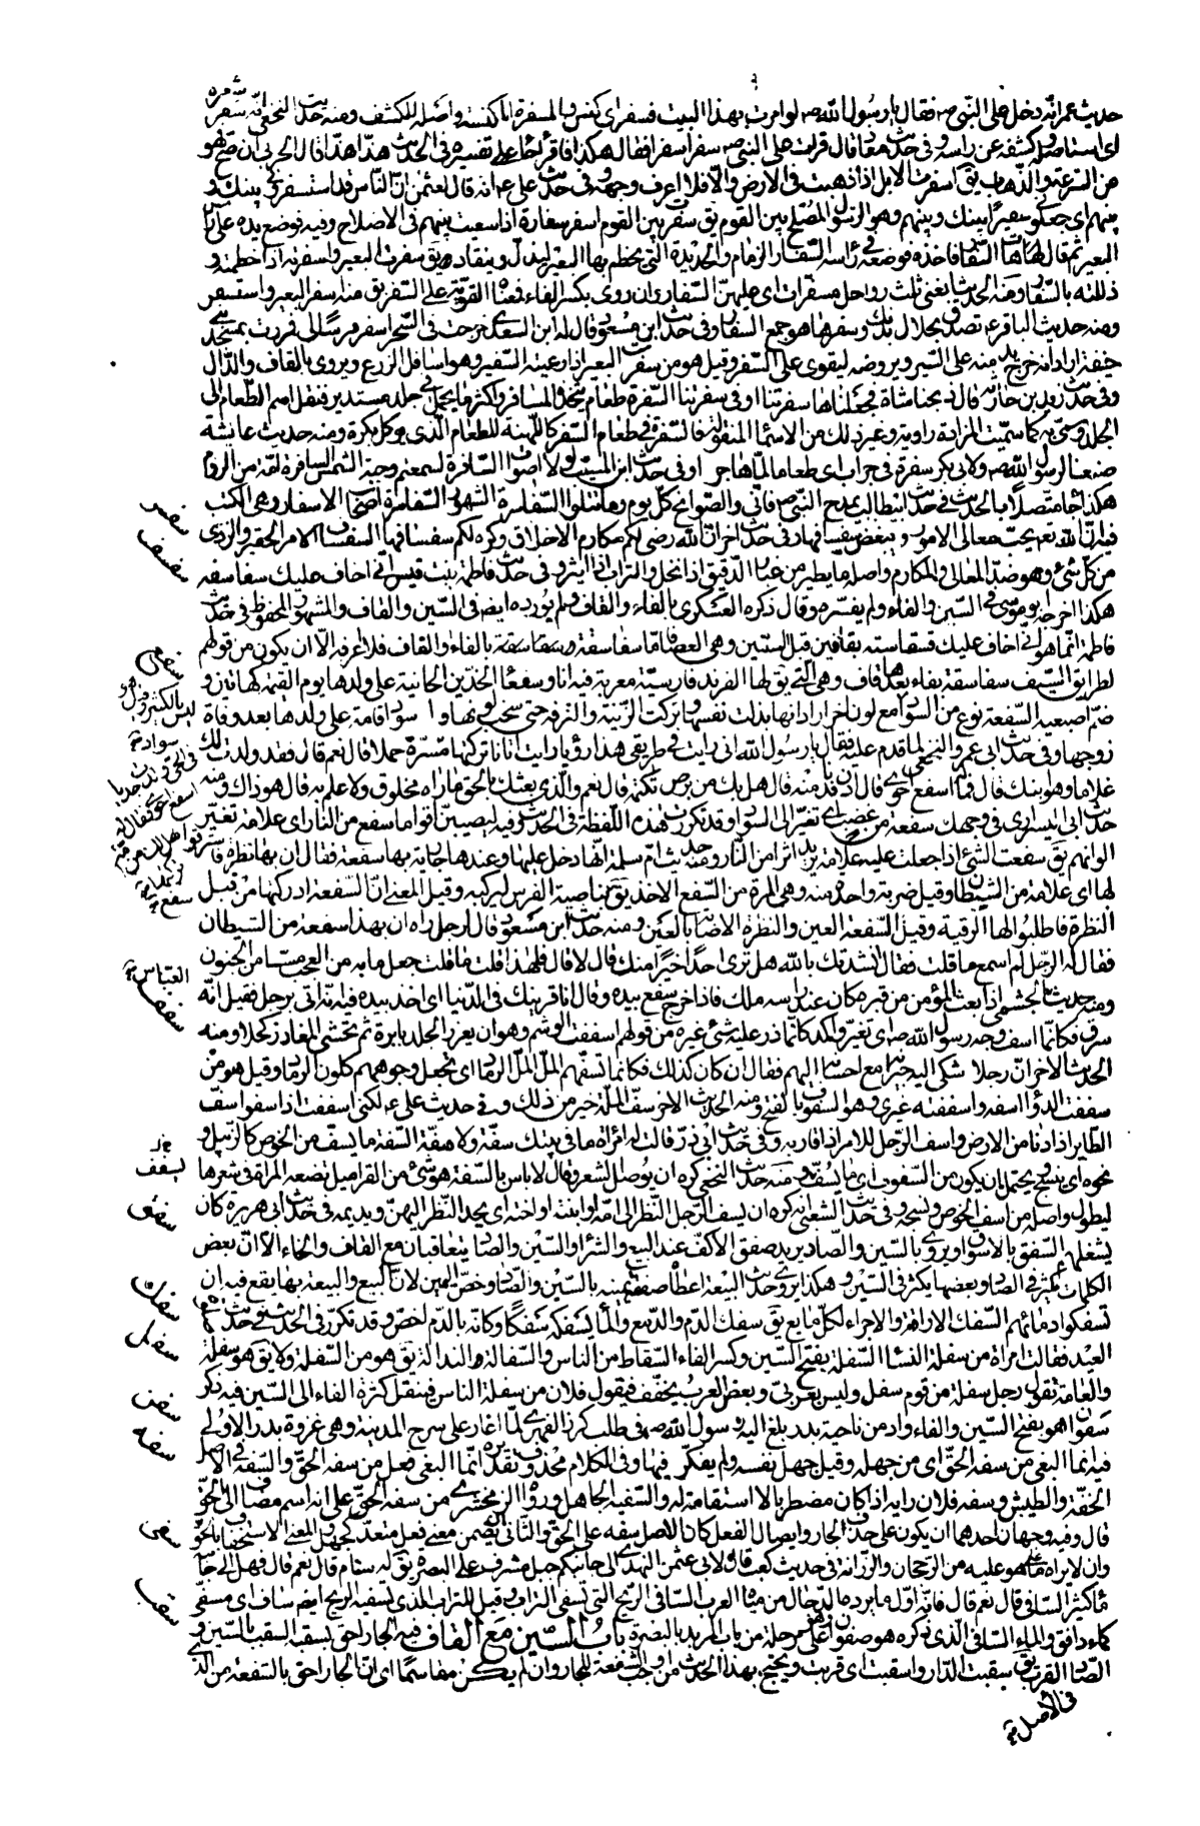 حديث عمر انه دخل على النبي ص فقال يا رسول الله ص لو امرت بهذا البيت فسفر اى كنس والمسفرة المكنسة واصله الكشف ومنه حديث النخعي انه سفر شعره
اى استاصله وكشفه عن راسه وفي حديث معاذ قال قرات على النبي ص سفرا سفرا فقال هكذا فاقرا جاء على تفسيره في الحديث هذّا هذّا قال الحربي ان صح فهو
من السرعة والذهاب يق اسفرت الابل اذا ذهبت في الارض والا فلا اعرف وجهه وفي حديث على ع انه قال لعثمن ان الناس قد استسفروني بينك و
بينهم اى جعلوني سفيرا بينك وبينهم وهو الرسول المصلح بين القوم يق سفرت بين القوم اسفر سفارة اذا سعيت بينهم في الاصلاح وفيه فوضع يده على راس
البعير ثم قال هات السفار فاخذه فوضعه في راسه السفار الزمام والحديدة التي يخطم بها البعير ليذل وينقاد يق سفرت البعير واسفرته اذا خطمته و
ذللته بالسفار ومنه الحديث ابغني ثلث رواحل مسفرات اى عليهن السفار وان روى بكسر الفاء فمعناه القوية على السفر يق منه اسفر البعير واستسفر
ومنه حديث الباقر ع تصدق بجلال بدنك وسفرها هو جمع السفار وفي حديث ابن مسعود قال له ابن السعدي خرجت في السحر اسفر فرسا لى فمررت بمسجد بني
حنيفة اراد انه خرج يدمنه على السير ويروضه ليقوى على السفر وقيل هو من سفرت البعير اذا رعيته السفير وهو اسافل الزرع ويروى بالقاف والدال
وفي حديث زيد بن حارثة قال ذبحنا شاة فجعلناها سفرتنا او في سفرتنا السفرة طعام يتخذه المسافر واكثر ما يحمل في جلد مستدير فنقل اسم الطعام الى
الجلد وسمى به كما سميت المزادة راوية وغير ذلك من الاسماء المنقولة فالسفرة في طعام السفر كاللهنة للطعام الذي يوكل بكرة ومنه حديث عائشة
صنعنا لرسول الله ص ولابي بكر سفرة في جراب اى طعاما لما هاجر او في حديث ابن المسيب لولا اصوات السافرة لسمعتم وجبة الشمس السافرة امة من الروم
هكذا جاء متصلا بالحديث في حديث ابيطالب يمدح النبي ص فاني والصوابح كل يوم وما تتلوا السفاسرة الشهود السفاسرة اصحاب الاسفار وهي الكتب
فيه ان الله تع يحب معالى الامور ويبغض سفسافها وفي حديث اخر ان الله رضى لكم مكارم الاخلاق وكره لكم سفسافها السفساف الامر الحقير والردى
من كل شئ وهو ضد المعالى والمكارم واصله ما يطير من غبار الدقيق اذا نخل والتراب اذا اثير وفي حديث فاطمة بنت قيس اني اخاف عليك سفاسفه
هكذا اخرجه ابو موسى في السين والفاء ولم يفسره وقال ذكره العسكري بالفاء والقاف ولم يورده ايضا في السين والقاف والمشهور المحفوظ في حديث
فاطمة انما هو اني اخاف عليك قسقاسته بقافين قبل السينين وهي العصا فاما سفاسفه وسقاسقه بالفاء والقاف فلا اعرفه الا ان يكون من قولهم
لطرايق السيف سفاسقه بفاء بعدها قاف وهي التي يق لها الفرند فارسية معربة فيه انا وسفعاء الخدين الحانية على ولدها يوم القيمة كهاتين و
ضم اصبعيه السفعة نوع من السواد مع لون اخر اراد انها بذلت نفسها وتركت الزينة والترفه حتى شحب لونها واسود اقامة على ولدها بعد وفاة
زوجها وفي حديث ابي عمرو النخعي لما قدم عليه فقال يا رسول الله اني رايت في طريقي هذا رؤيا رايت اتانا تركتها في الحي ولدت
غلاما وهو ابنك قال فما له اسفع احوى قال ادن مني فدنا منه قال هل بك من برص تكتمه قال نعم والذي بعثك بالحق ما راه مخلوق ولا علم به قال هو ذاك ومنه
حديث ابي اليسر ارى في وجهك سفعة من غضب اى تغيرا الى السواد وقد تكررت هذه اللفظة في الحديث وفيه ليصيبن اقواما سفع من النار اى علامة تغير
الوانهم يق سفعت الشئ اذا جعلت عليه علامة يريد اثرا من النار ومنه حديث ام سلمة انه دخل عليها وعندها جارية بها سفعة فقال ان بها نظرة فاسترقوا
لها اى علامة من الشيطان وقيل ضربة واحدة منه وهي المرة من السفع الاخذ يق سفع بناصية الفرس ليركبه وقيل المعنى ان السفعة ادركتها من قبل
النظرة فاطلبوا لها الرقية وقيل السفعة العين والنظرة الاصابة بالعين ومنه حديث ابن مسعود قال لرجل راه ان بهذا سفعة من الشيطان
فقال له الرجل لم اسمع ما قلت فقال انشدتك بالله هل ترى احدا خيرا منك قال لا قال فلهذا قلت ما قلت جعل ما به من العجب مسا من الجنون
ومنه حديث الجشمي اذا بعث المؤمن من قبره كان عند راسه ملك فاذا خرج سفع بيده وقال انا قرينك في الدنيا اى اخذ بيده فيه اتى برجل فقيل انه
سرق فكانما اسف وجه رسول الله ص اى تغير واكمد كانما ذر عليه شئ غيره من قولهم اسففت الوشم وهو ان يغرز الجلد بابرة ثم تحشى المغارز كحلا ومنه
الحديث الاخر ان رجلا شكى اليه جيرانه مع احسانه اليهم فقال ان كان كذلك فكانما تسفهم المل المل الرماد اى تجعل وجوههم كلون الرماد وقيل هو من
سففت الدواء اسفه واسففته غيري وهو السفوف بالفتح ومنه الحديث الاخر سف الملة خير من ذلك وفي حديث على ع لكني اسففت اذ اسفوا اسف
الطاير اذا دنا من الارض واسف الرجل للامر اذا قاربه وفي حديث ابي ذر قالت له امراة ما في بيتك سفة ولا هفة السفة ما يسف من الخوص كالزبيل و
نحوه اى ينسج ويحتمل ان يكون من السفوف اى ما يستف ومنه حديث النخعي كره ان يوصل الشعر وقال لا باس بالسفة هو شئ من القراميل تضعه المراة في شعرها
ليطول واصله من سف الخوص ونسجه وفي حديث الشعبي انه كره ان يسف الرجل النظر الى امه او ابنته او اخته اى يحد النظر اليهن ويديمه في حديث ابي هريرة كان
يشغلهم السفق بالاسواق ويروى بالسين والصاد يريد صفق الاكف عند البيع والشراء والسين والصاد يتعاقبان مع القاف والخاء الا ان بعض
الكلمات يكثر في الصاد وبعضها يكثر في السين وهكذا يروى حديث البيعة اعطاه صفقة يمينه بالسين والصاد وخص اليمين لان البيع والبيعة بها يقع فيه ان
تسفكوا دمائهم السفك الاراقة والاجراء لكل مايع يق سفك الدم والدمع والماء يسفكه سفكا وكانه بالدم اخص وقد تكرر في الحديث في حديث صلوة
العيد فقالت امراة من سفلة النساء السفلة بفتح السين وكسر الفاء السقاط من الناس والسفالة النذالة يق هو من السفلة ولا يق هو سفلة
والعامة تقول رجل سفلة من قوم سفل وليس بعربي وبعض العرب يخفف فيقول فلان من سفلة الناس فينقل كسرة الفاء الى السين فيه ذكر
سفوان هو بفتح السين والفاء واد من ناحية بدر بلغ اليه رسول الله ص في طلب كرز الفهري لما اغار على سرح المدينة وهي غزوة بدر الاولى
فيه انما البغي من سفه الحق اى من جهله وقيل جهل نفسه ولم يفكر فيها وفي الكلام محذوف تقديره انما البغي فعل من سفه الحق والسفه في الاصل
الخفة والطيش وسفه فلان رايه اذا كان مضطربا لا استقامة له والسفيه الجاهل ورواه الزمخشري من سفه الحق على انه اسم مضاف الى الحق
قال وفيه وجهان احدهما ان يكون على حذف الجار وايصال الفعل كان الاصل سفه على الحق والثاني ان يضمن معنى فعل متعد كجهل والمعنى الاستخفاف بالحق
وان لا يراه على ما هو عليه من الرجحان والرزانة في حديث كعب قال لابي عثمن النهدي الى جانبكم جبل مشرف على البصرة يق له سنام قال نعم قال فهل الى جانبه
ماء كثير السافي قال نعم قال فانه اول ماء يرده الدجال من مياه العرب السافي الريح التي تسفى التراب وقيل للتراب الذي تسفيه الريح ايضا ساف اى مسفى
كماء دافق والماء السافي الذي ذكره هو صفوان وهو على مرحلة من باب المربد بالبصرة باب السين مع القاف فيه الجار احق بسقبه السقب بالسين و
الصاد القرب يق سقبت الدار واسقبت اى قربت ويحتج بهذا الحديث من اوجب الشفعة للجار وان لم يكن مقاسما اى ان الجار احق بالشفعة من الذي
سفسر
سفسف
سفع
سفف
سفق
سفك
سفل
سفن
سفه
سفى
سقب
في الاصل